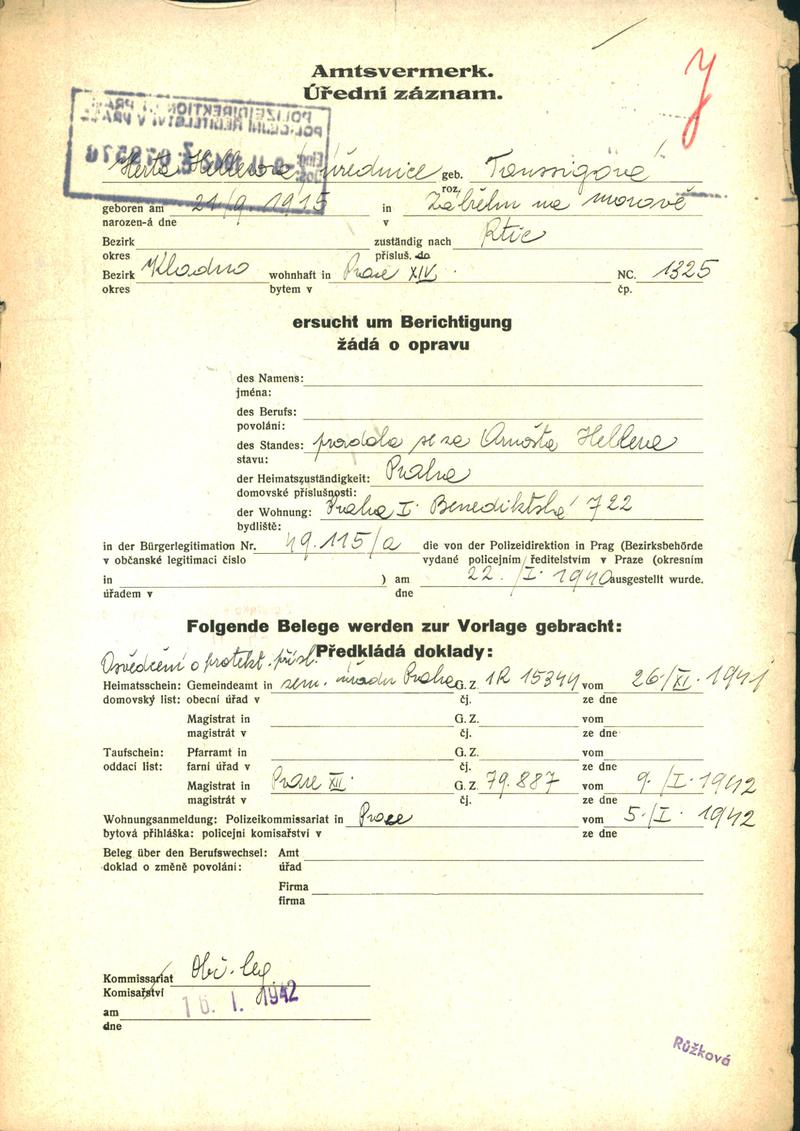 Amtsvermerk.
Úřední záznam.
J
POLIZEIDIREKTION IN PRAG
POLICEJNÍ ŘEDITELSTVÍ V PRAZE
Herta Hellerová úřednice geb. Taussigová
roz.
geboren am 21/9. 1915 in Zábřehu na moravě
narozen-á dne v
Bezirk zuständig nach Rtic
okres přísluš. do
Bezirk Kladno wohnhaft in Praze XIV. NC. 1325
okres bytem v čp.
ersucht um Berichtigung
žádá o opravu
des Namens:
jména:
des Berufs:
povolání:
des Standes: provdala se za Arnošta Hellera
stavu:
der Heimatszuständigkeit: Praha
domovské příslušnosti:
der Wohnung: Praha I. Benediktská 722
bydliště:
in der Bürgerlegitimation Nr. 49.115/a die von der Polizeidirektion in Prag (Bezirksbehörde
v občanské legitimaci číslo vydané policejním ředitelstvím v Praze (okresním
in ) am 22./I. 1940 ausgestellt wurde.
úřadem v dne
Folgende Belege werden zur Vorlage gebracht:
Předkládá doklady:
Osvědčení o protekt. přísl.
Heimatsschein: Gemeindeamt in zem. úřadu Praha G. Z. 1R 15344 vom 26/XI. 1941
domovský list: obecní úřad v čj. ze dne
Magistrat in G. Z. vom
magistrát v čj. ze dne
Taufschein: Pfarramt in G. Z. vom
oddací list: farní úřad v čj. ze dne
Magistrat in Praze XII. G. Z. 79.887 vom 9./I. 1942
magistrát v čj. ze dne
Wohnungsanmeldung: Polizeikommissariat in Praze vom 5./I. 1942
bytová přihláška: policejní komisařství v ze dne
Beleg über den Berufswechsel: Amt
doklad o změně povolání: úřad
Firma
firma
Kommissariat Obč. leg.
Komisařství
am 16. I. 1942
dne
Růžková